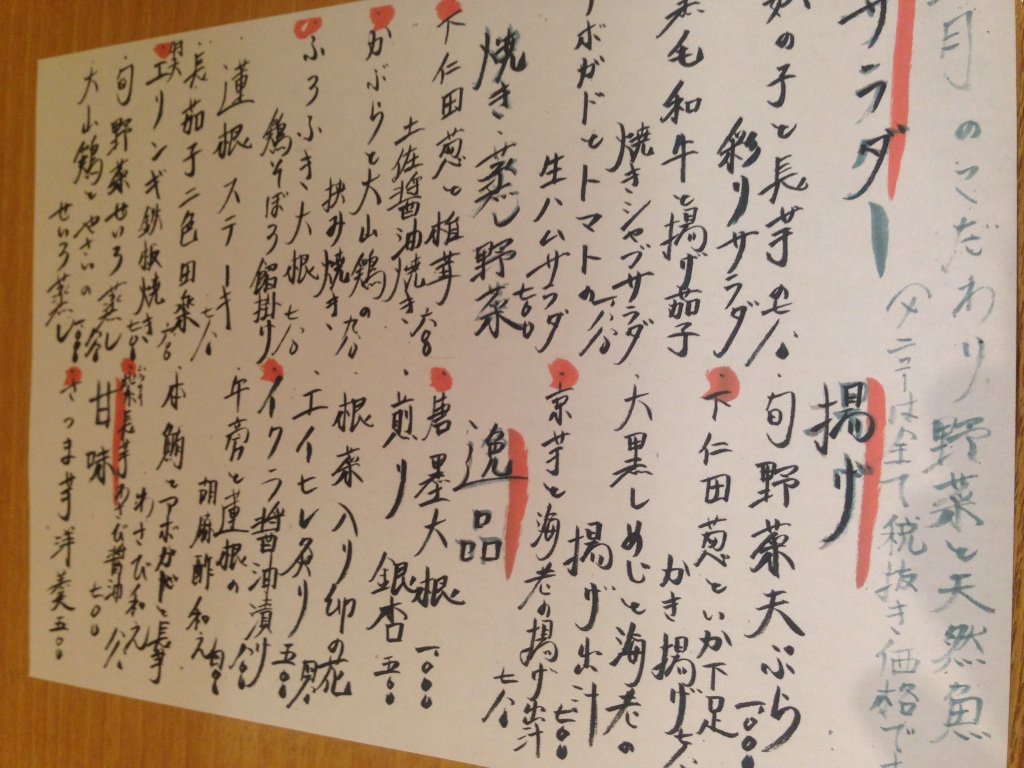 月のこだわり野菜と天然魚
メニューは全て税抜き価格です
サラダー
の子と長芋の
彩りサラダ
黒毛和牛と揚げ茄子
焼きシャブサラダ
アボカドとトマトの
生ハムサラダ 七〇〇
焼き・蒸し野菜
下仁田葱と椎茸
土佐醤油焼き 六〇〇
かぶらと大山鶏の
挟み焼き 九八〇
ふろふき大根 七八〇
鶏そぼろ餡掛け
蓮根ステーキ
長茄子二色田楽
エリンギ鉄板焼き
旬野菜せいろ蒸し
大山鶏とやさいの
せいろ蒸し
揚げ
旬野菜天ぷら 一、〇〇〇
下仁田葱といか下足
かき揚げ
大黒しめじと海老の
揚げ出汁 七〇〇
京芋と海老の揚げ出汁
逸品
唐墨大根 一、〇〇〇
煎り銀杏 五〇〇
根菜入り卯の花
エイヒレ炙り 五〇〇
イクラ醤油漬け
牛蒡と蓮根の
胡麻酢和え
本鮪とアボカドと長芋
わさび和え
長芋わさび醤油
七〇〇
甘味
さつま芋洋羹 五〇〇